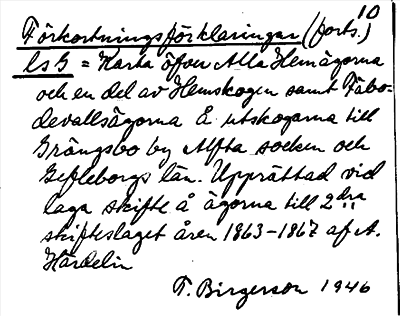 10
Förkortningsförklaringar (forts.)
ls G = Karta öfver Alla Hemägorna
och en del av Hemskogen samt Fäbo-
devallsägorna Å utskogarna till
Grängsbo by Alfta socken och
Gefleborgs län. Upprättad vid
laga skifte å ägorna till 2dra
skifteslaget åren 1863-1867 af A.
Hårdelin
T. Birgerson 1946